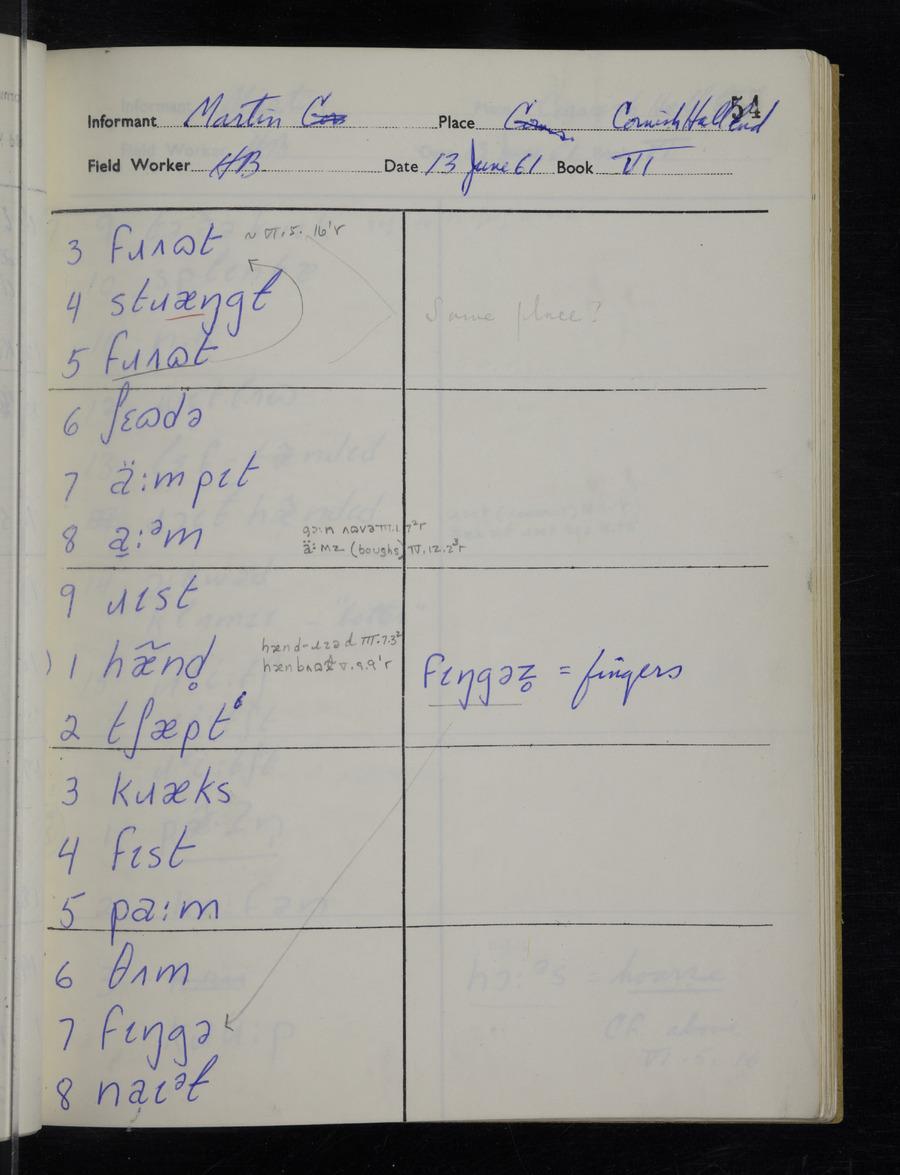 54
Informant Martin Place Cornish Hall End
Field Worker HB Date 13 June 61 Book VI
3 fɹʌɷt ~ VI.5.16'r
4 stɹæŋgt Same place?
5 fɹʌɷt
6 ʃɛɷdə
7 ä:mpɪt
8 a̠:ᵊm
ä:mz (boughs) IV.12.2³r
9 ɹɪst
1 hæ̃nd̥ hænd-ɹɪəd III.7.3²
2 tʃæpt fɪŋgəz̥ = fingers
3 kɹæks
4 fɪst
5 pa:m
6 θʌm
7 fɪŋgə
8 naɪᵊt